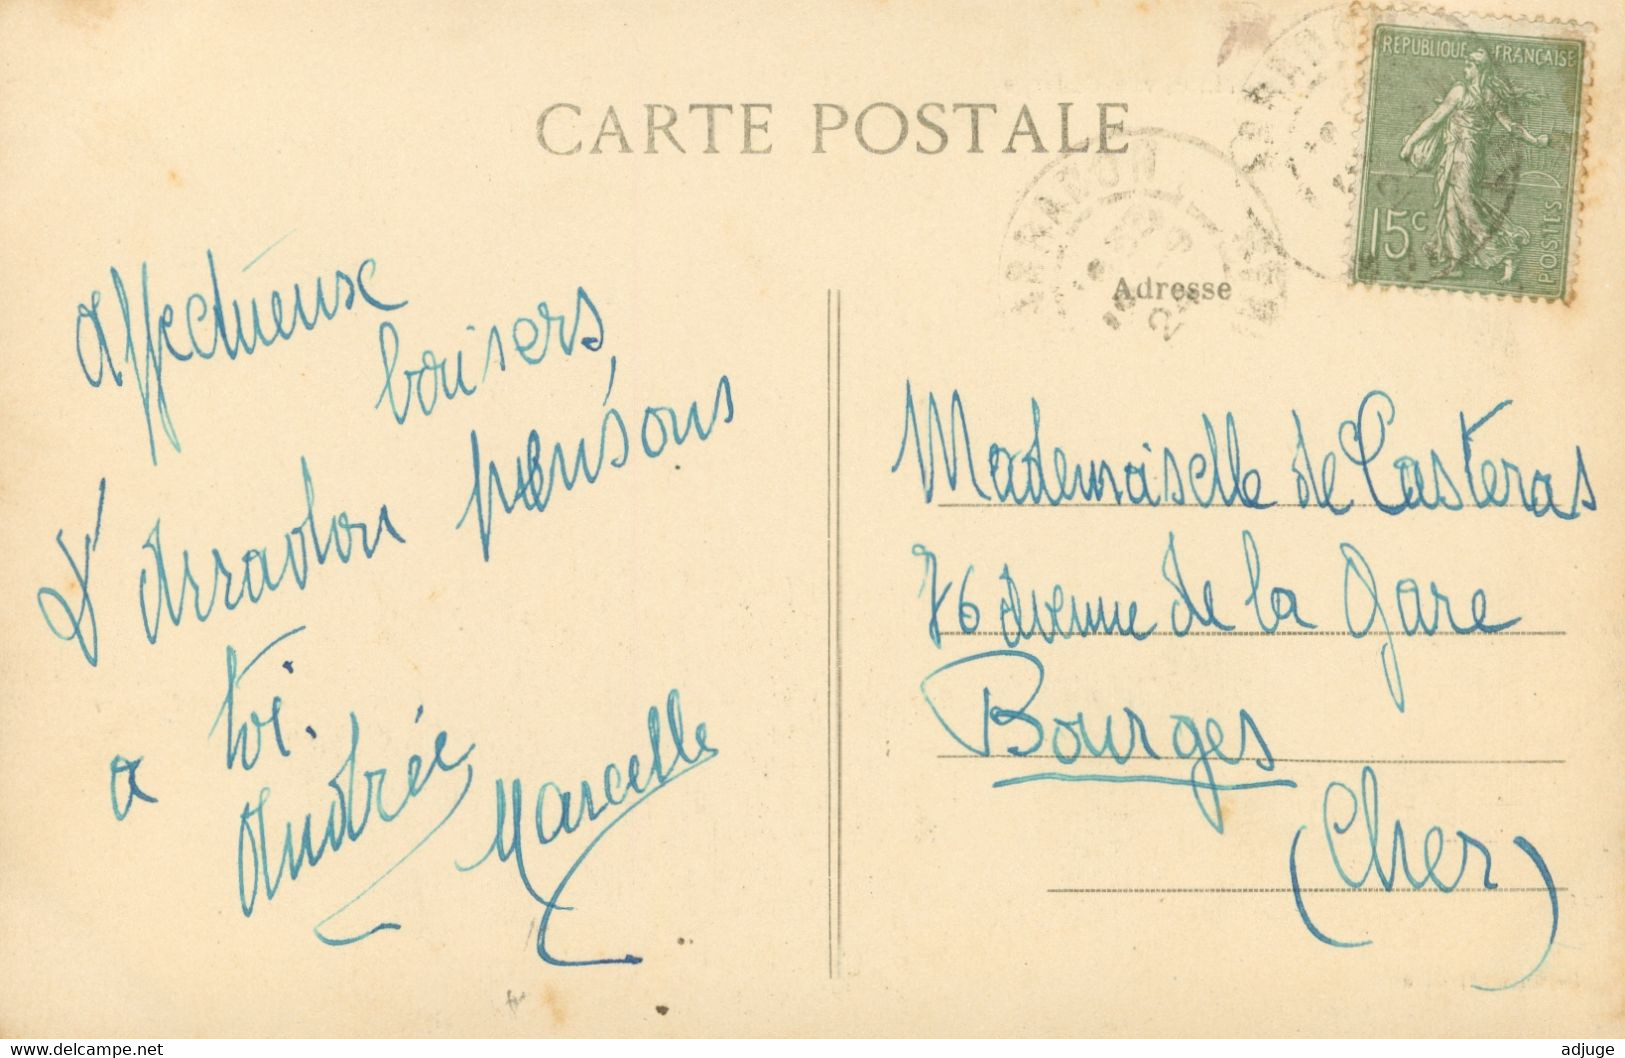 CARTE POSTALE
REPUBLIQUE FRANÇAISE
15c
POSTES
ARRADON
Adresse
Affectueuse
baisers,
d'Arradon pensons
a toi.
Andrée Marcelle
Mademoiselle de Casteras
76 Avenue de la Gare
Bourges
(Cher)
www.delcampe.net
adjuge